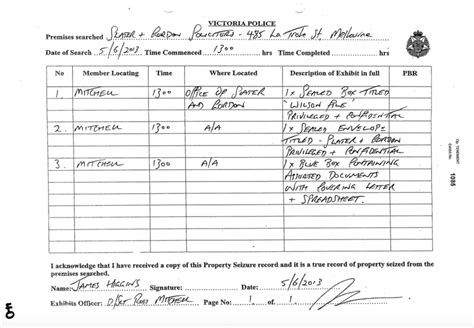 VICTORIA POLICE
Premises searched SLATER + GORDON SOLICITORS - 485 LA TROBE ST. MELBOURNE
Date of Search 5/6/2013 Time Commenced 1300 hrs Time Completed hrs
No Member Locating Time Where Located Description of Exhibit in full PBR
1. MITCHELL 1300 OFFICE OF SLATER AND GORDON 1 x SEALED BOX TITLED
WILSON FILE'
PRIVILEGED + CONFIDENTIAL
2. MITCHELL 1300 A/A 1 x SEALED ENVELOPE
TITLED - SLATER + GORDON
PRIVILEGED + CONFIDENTIAL
3. MITCHELL 1300 A/A 1 x BLUE BOX CONTAINING
DOCUMENTS
WITH COVERING LETTER
+ SPREADSHEET.
I acknowledge that I have received a copy of this Property Seizure record and it is a true record of property seized from the
premises searched.
Name: JAMES HIGGINS Signature: 5/6/2013
Exhibits Officer: D/SGT ROSS MITCHELL Page No: 1 of 1
1085